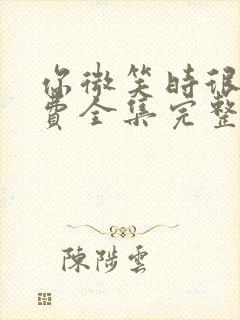 你微笑时很
费全集完整
陳陟雲